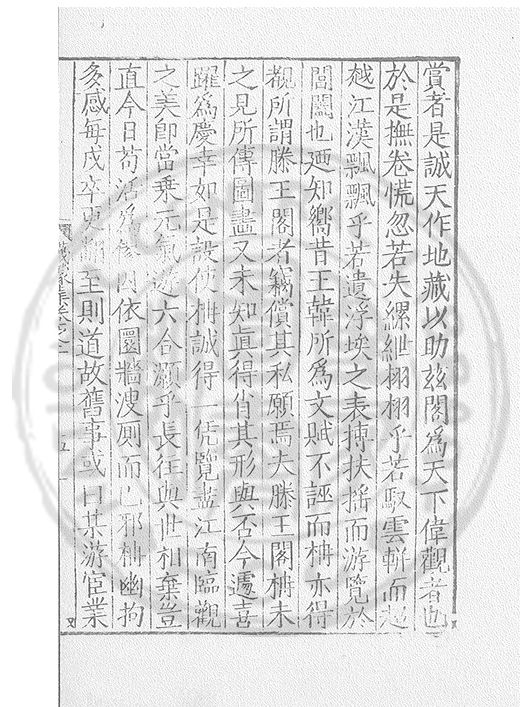 賞者是誠天作地藏以助兹閣為天下偉觀者也
於是撫卷慌忽若失縲紲栩栩乎若馭雲軿而超
越江漢飄飄乎若遺浮埃之表摶扶摇而游覽於
閶闔也廼知嚮昔王韓所為文賦不誣而柟亦得
覩所謂滕王閣者竊償其私願焉夫滕王閣柟未
之見所傳圖畫又未知真得肖其形與否今遽喜
躍為慶幸如是設使柟誠得一凭覽盡江南臨觀
之美即當乘元氣遊六合灝乎長往與世相棄豈
直今日苟活為修囚依圜牆溲厠而已邪柟幽拘
多感每戍卒更 至則道故舊事或曰某游宦業